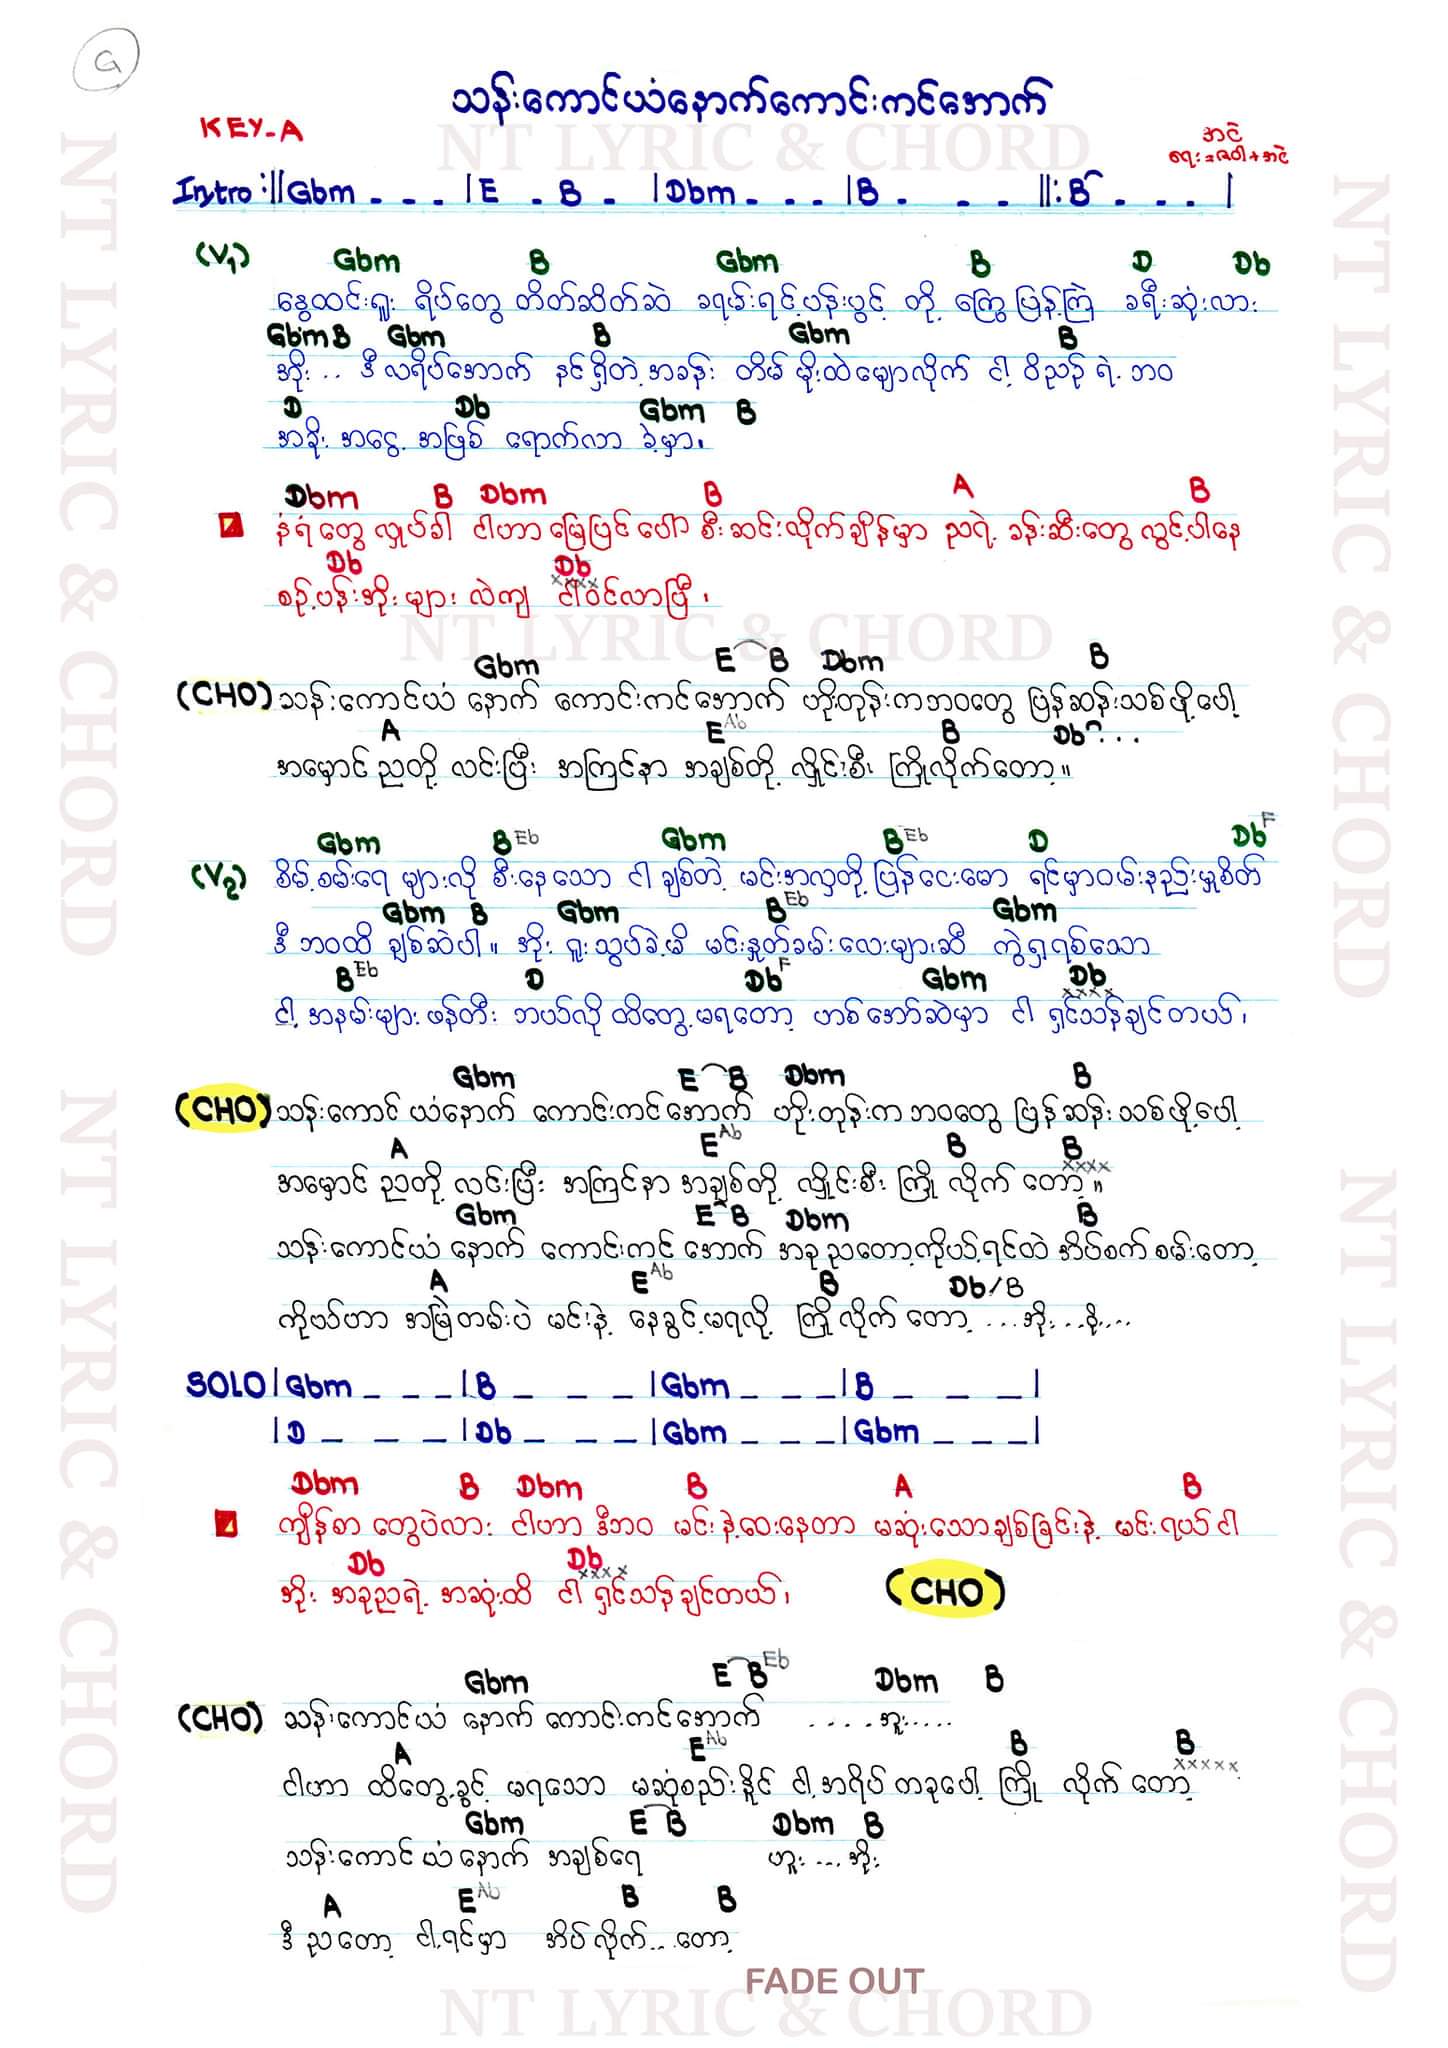 G
သန်းကောင်ယံနောက်ကောင်းကင်အောက်
KEY-A
အငဲ
ရေး=ဒဝါ+အငဲ
Intro :||Gbm - - - |E - B - |Dbm - - - |B - - - ||: B - - - |
(V1) Gbm B Gbm B D Db
နွေထင်းရှူး ရိပ်တွေ တိတ်ဆိတ်ဆဲ ခရမ်းရင့်ပန်းပွင့် တို့ ကြွေပြန့်ကြဲ ခရီးဆုံးလား
Gbm B Gbm B Gbm B
အိုး .. ဒီလရိပ်အောက် နင်ရှိတဲ့အခန်း တိမ်မိုးထဲမျောလိုက် ငါ့ ဝိညဉ် ရဲ့ ဘဝ
D Db Gbm B
အခိုး အငွေ့ အဖြစ် ရောက်လာ ခဲ့မှာ၊
Dbm B Dbm B A B
နံရံတွေ လှုပ်ခါ ငါဟာ မြေပြင်ပေါ် စီးဆင်းလိုက်ချိန်မှာ ညရဲ့ ခန်းဆီးတွေ လွင့်ပါနေ
Db Db
xxxx
စဉ့်ပန်းအိုးများ လဲကျ ငါဝင်လာပြီ ၊
Gbm E B Dbm B
(CHO) သန်းကောင်ယံ နောက် ကောင်းကင်အောက် ဟိုးတုန်းကဘဝတွေ ပြန်ဆန်းသစ်ဖို့ပေါ့
A E Ab B Db ...
အမှောင်ညတို့ လင်းပြီး အကြင်နာ အချစ်တို့ လှိုင်းစီး ကြိုလိုက်တော့။
Gbm B Eb Gbm B Eb D Db F
(V2) စိမ့်စမ်းရေ များလို စီးနေသော ငါ ချစ်တဲ့ မင်းအလှတို့ ပြန်ငေးမော ရင်မှာဝမ်းနည်းမှုစိတ်
Gbm B Gbm B Eb Gbm
ဒီ ဘဝထိ ချစ်ဆဲပါ။ အိုး ရူးသွပ်ခဲ့မိ မင်းနှုတ်ခမ်းလေးများဆီ ကွဲရှရစ်သော
B Eb D Db F Gbm Db
xxxx
ငါ့ အနမ်းများ ဖန်တီး ဘယ်လို ထိတွေ့မရတော့ ဟစ်အော်ဆဲမှာ ငါ ရှင်သန်ချင်တယ်၊
Gbm E B Dbm B
(CHO) သန်းကောင် ယံနောက် ကောင်းကင်အောက် ဟိုးတုန်းက ဘဝတွေ ပြန်ဆန်းသစ်ဖို့ပေါ့
A E Ab B B
xxxx
အမှောင် ညတို့ လင်းပြီး အကြင်နာ အချစ်တို့ လှိုင်းစီး ကြို လိုက် တော့။
Gbm E B Dbm B
သန်းကောင်ယံ နောက် ကောင်းကင် အောက် အခုညတော့ကိုယ့်ရင်ထဲ အိပ်စက်စမ်းတော့
A E Ab B Db/B
ကိုယ်ဟာ အမြဲတမ်းပဲ မင်းနဲ့ နေခွင့်မရလို့ ကြိုလိုက်တော့ ...အိုး...နိုး....
SOLO |Gbm - - - |B - - - |Gbm - - - |B - - - |
|D - - - |Db - - - |Gbm - - - |Gbm - - - |
Dbm B Dbm B A B
ကျိန်စာ တွေပဲလား ငါဟာ ဒီဘဝ မင်းနဲ့ဝေးနေတာ မဆုံးသောချစ်ခြင်းနဲ့ မင်းရယ် ငါ
Db Db
xxxx
အိုး အခုညရဲ့ အဆုံးထိ ငါ ရှင်သန်ချင်တယ်၊ (CHO)
Gbm E B Eb Dbm B
(CHO) သန်းကောင်ယံ နောက် ကောင်းကင်အောက် .....အူး.....
A E Ab B B
xxxxx
ငါဟာ ထိတွေ့ခွင့် မရသော မဆုံစည်းနိုင် ငါ့အရိပ် တခုပေါ့ ကြို လိုက် တော့
Gbm E B Dbm B
သန်းကောင်ယံနောက် အချစ်ရေ ဟူး ... အိုး
A E Ab B B
ဒီညတော့ ငါ့ရင်မှာ အိပ်လိုက်...တော့
FADE OUT
NT LYRIC & CHORD
NT LYRIC & CHORD
NT LYRIC & CHORD
NT LYRIC & CHORD
NT LYRIC & CHORD
NT LYRIC & CHORD
NT LYRIC & CHORD